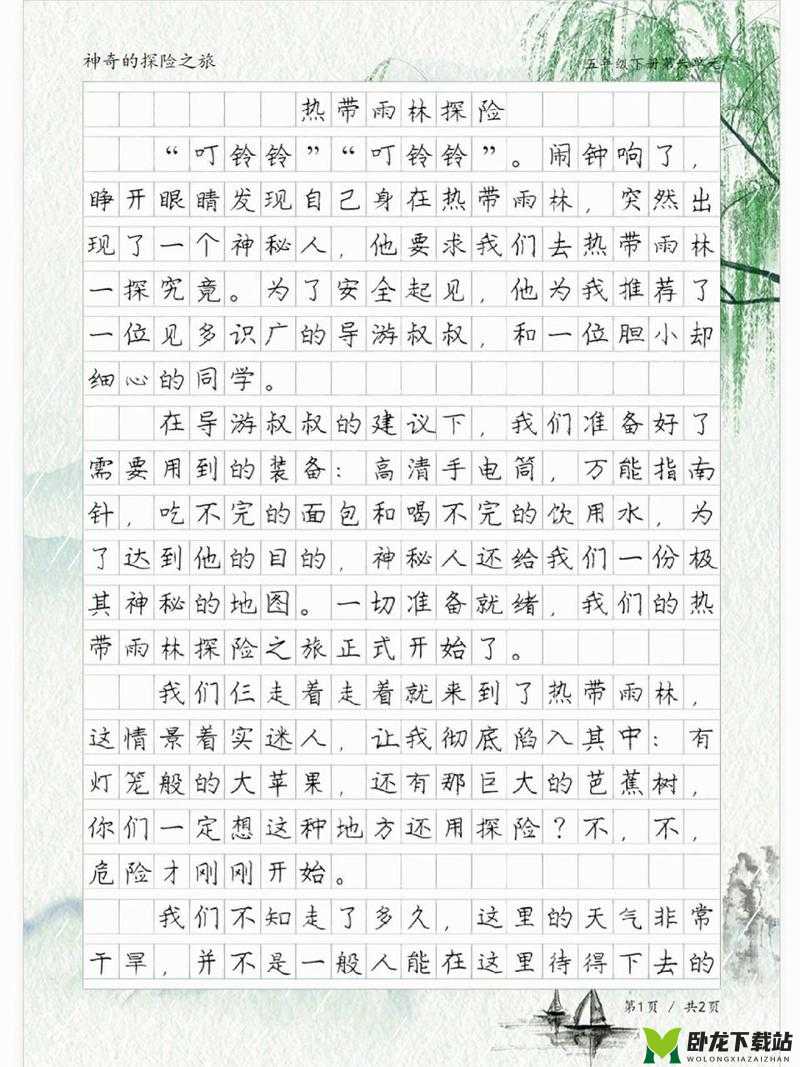 神奇的探险之旅
五年级下册第六单元
热带雨林探险
“叮铃铃”“叮铃铃”。闹钟响了，
睁开眼睛发现自己身在热带雨林，突然出
现了一个神秘人，他要求我们去热带雨林
一探究竟。为了安全起见，他为我推荐了
一位见多识广的导游叔叔，和一位胆小却
细心的同学。
在导游叔叔的建议下，我们准备好了
需要用到的装备：高清手电筒，万能指南
针，吃不完的面包和喝不完的饮用水，为
了达到他的目的，神秘人还给我们一份极
其神秘的地图。一切准备就绪，我们的热
带雨林探险之旅正式开始了。
我们仨走着走着就来到了热带雨林，
这情景着实迷人，让我彻底陷入其中：有
灯笼般的大苹果，还有那巨大的芭蕉树，
你们一定想这种地方还用探险？不，不，
危险才刚刚开始。
我们不知走了多久，这里的天气非常
干旱，并不是一般人能在这里待得下去的
第1页 / 共2页
卧龙下载站
WOLONGXIAZAIZHAN